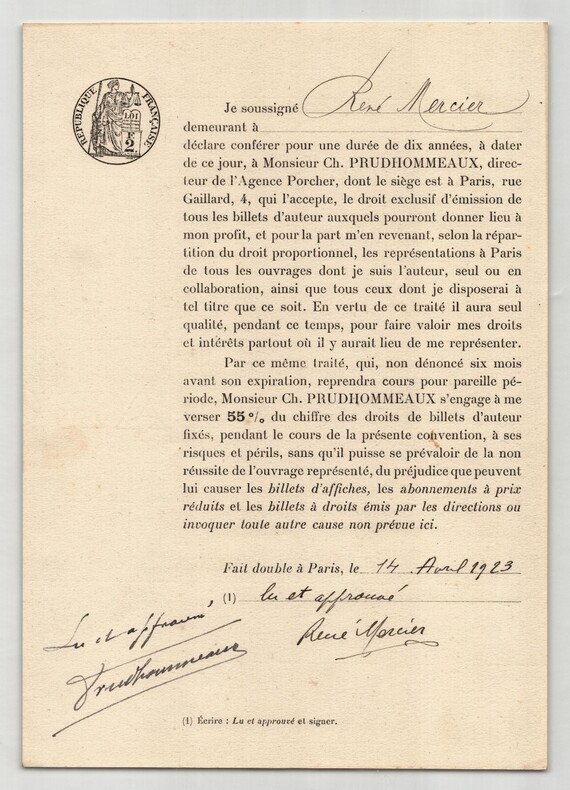 RÉPUBLIQUE FRANÇAISE
LOI
F
2
Je soussigné René Mercier
demeurant à
déclare conférer pour une durée de dix années, à dater
de ce jour, à Monsieur Ch. PRUDHOMMEAUX, direc-
teur de l'Agence Porcher, dont le siège est à Paris, rue
Gaillard, 4, qui l'accepte, le droit exclusif d'émission de
tous les billets d'auteur auxquels pourront donner lieu à
mon profit, et pour la part m'en revenant, selon la répar-
tition du droit proportionnel, les représentations à Paris
de tous les ouvrages dont je suis l'auteur, seul ou en
collaboration, ainsi que tous ceux dont je disposerai à
tel titre que ce soit. En vertu de ce traité il aura seul
qualité, pendant ce temps, pour faire valoir mes droits
et intérêts partout où il y aurait lieu de me représenter.
Par ce même traité, qui, non dénoncé six mois
avant son expiration, reprendra cours pour pareille pé-
riode, Monsieur Ch. PRUDHOMMEAUX s'engage à me
verser 55 % du chiffre des droits de billets d'auteur
fixés, pendant le cours de la présente convention, à ses
risques et périls, sans qu'il puisse se prévaloir de la non
réussite de l'ouvrage représenté, du préjudice que peuvent
lui causer les billets d'affiches, les abonnements à prix
réduits et les billets à droits émis par les directions ou
invoquer toute autre cause non prévue ici.
Fait double à Paris, le 14 Avril 1923
(1) lu et approuvé
René Mercier
Lu et approuvé
Prudhommeaux
(1) Écrire : Lu et approuvé et signer.